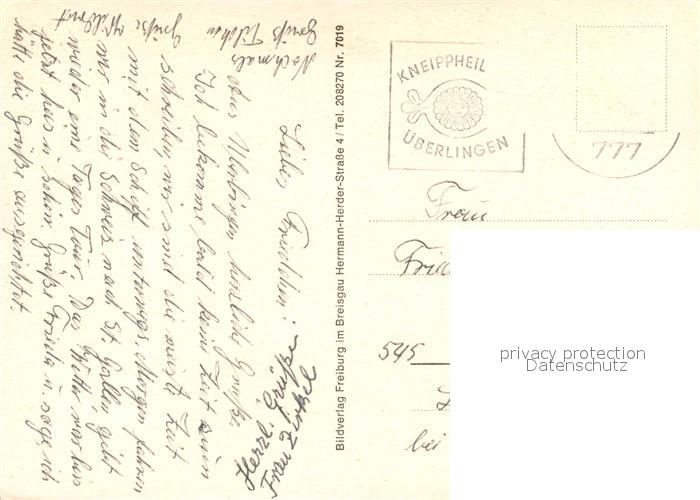 Liebes Friedchen!
Aus Überlingen herzliche Grüße.
Ich bekomme bald keine Zeit zum
schreiben, wir sind die meiste Zeit
mit dem Schiff unterwegs. Morgen fahren
wir in die Schweiz nach St. Gallen, gibt
wieder eine Tages Tour. Das Wetter war bis
jetzt schön. Grüße Frieda u. sage ich
hätte die Grüße ausgerichtet.
Grüße
Nochmals
Gruß
Herzl. Grüße
Frau
Bildverlag Freiburg im Breisgau Hermann-Herder-Straße 4 / Tel. 208270 Nr. 7019
KNEIPPHEIL
ÜBERLINGEN
777
Frau
545
bei
privacy protection
Datenschutz